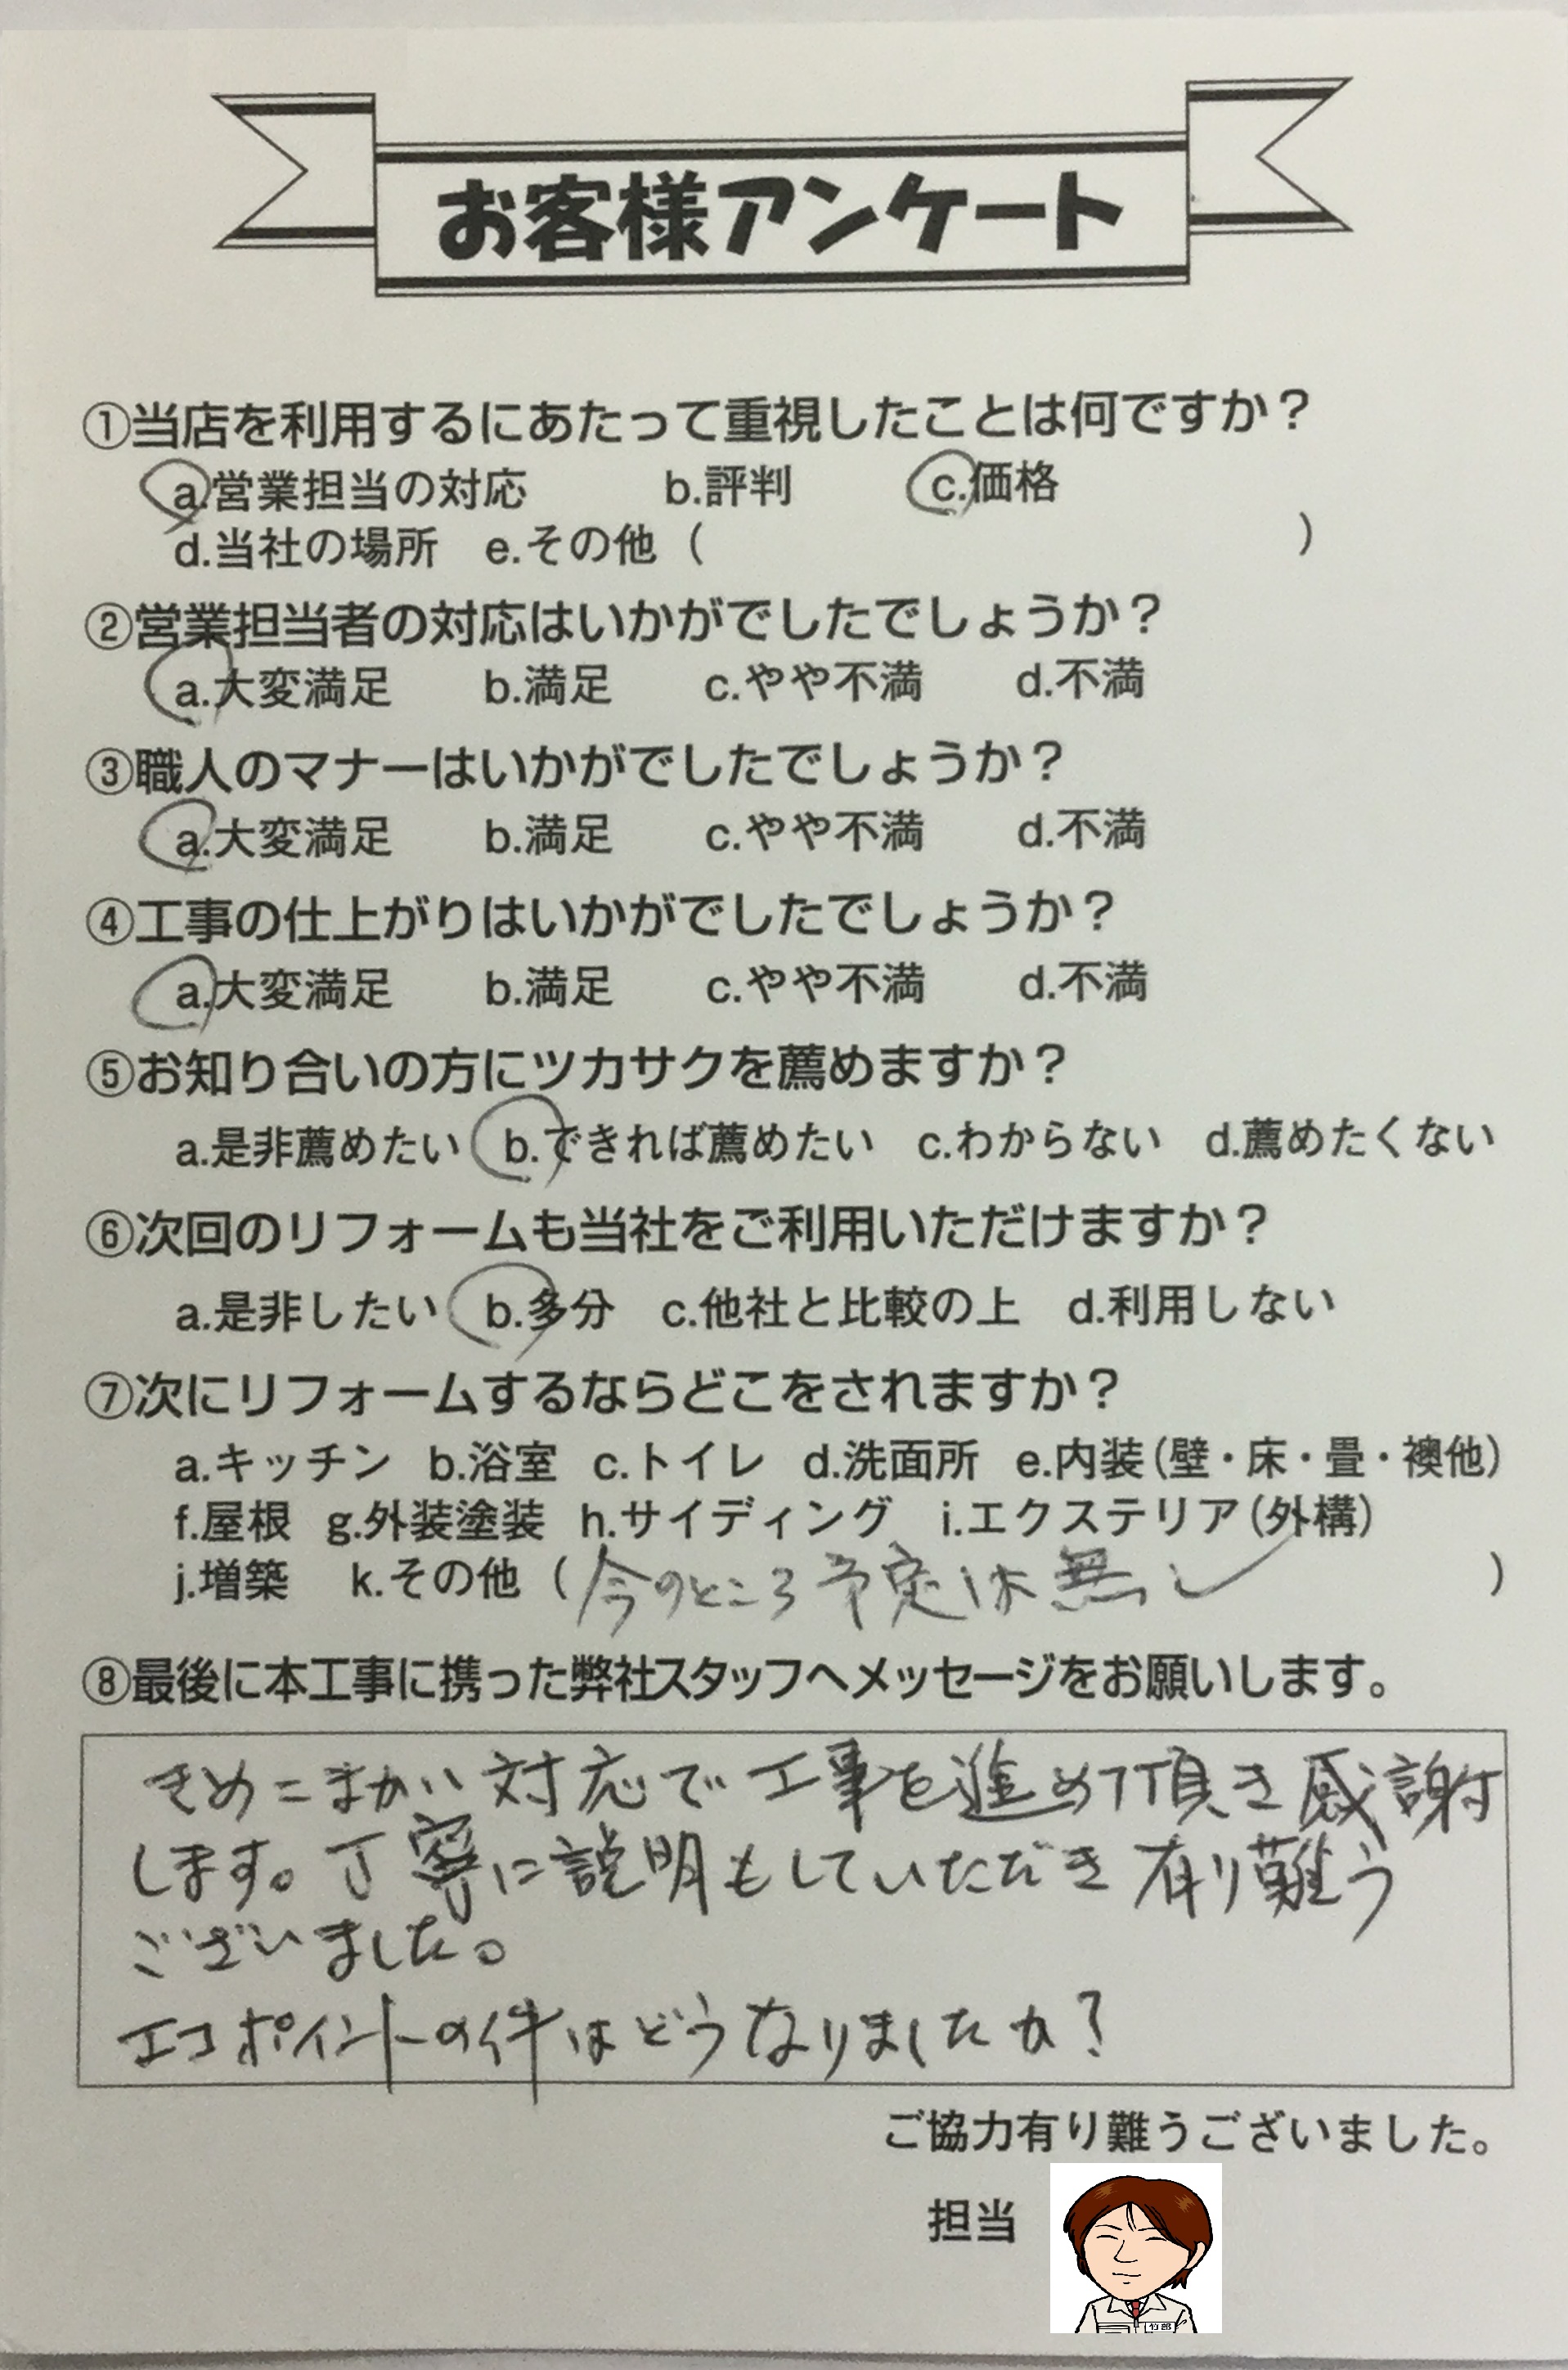 お客様アンケート
①当店を利用するにあたって重視したことは何ですか？
a.営業担当の対応 b.評判 c.価格
d.当社の場所 e.その他（ ）
②営業担当者の対応はいかがでしたでしょうか？
a.大変満足 b.満足 c.やや不満 d.不満
③職人のマナーはいかがでしたでしょうか？
a.大変満足 b.満足 c.やや不満 d.不満
④工事の仕上がりはいかがでしたでしょうか？
a.大変満足 b.満足 c.やや不満 d.不満
⑤お知り合いの方にツカサクを薦めますか？
a.是非薦めたい b.できれば薦めたい c.わからない d.薦めたくない
⑥次回のリフォームも当社をご利用いただけますか？
a.是非したい b.多分 c.他社と比較の上 d.利用しない
⑦次にリフォームするならどこをされますか？
a.キッチン b.浴室 c.トイレ d.洗面所 e.内装（壁・床・畳・襖他）
f.屋根 g.外装塗装 h.サイディング i.エクステリア（外構）
j.増築 k.その他（今のところ予定は無し）
⑧最後に本工事に携った弊社スタッフへメッセージをお願いします。
きめこまかい対応で工事を進めて頂き感謝
します。丁寧に説明もしていただき有り難う
ございました。
エコポイントの件はどうなりましたか？
ご協力有り難うございました。
担当
竹部